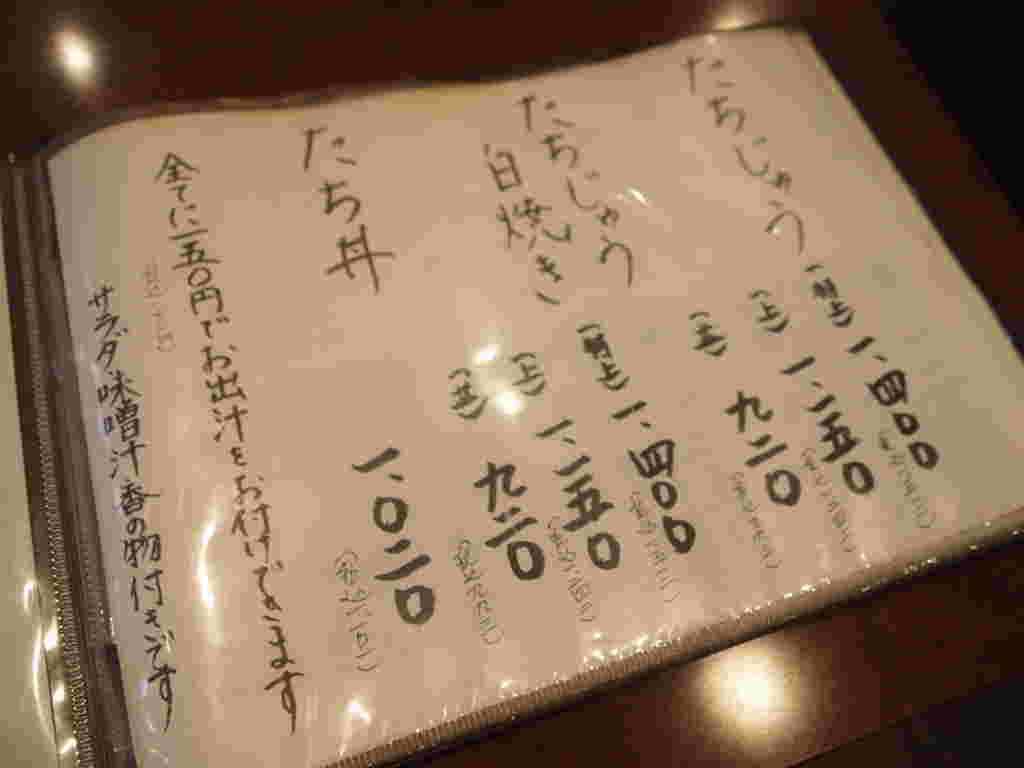 たちじゅう
(特上) 一、四〇〇
(上) 一、一五〇
(並) 九二〇
たちじゅう
白焼き
(特上) 一、四〇〇
(上) 一、一五〇
(並) 九二〇
たち丼
一、〇二〇
全てに一五〇円でお出汁をお付けできます
サラダ味噌汁香の物付きです